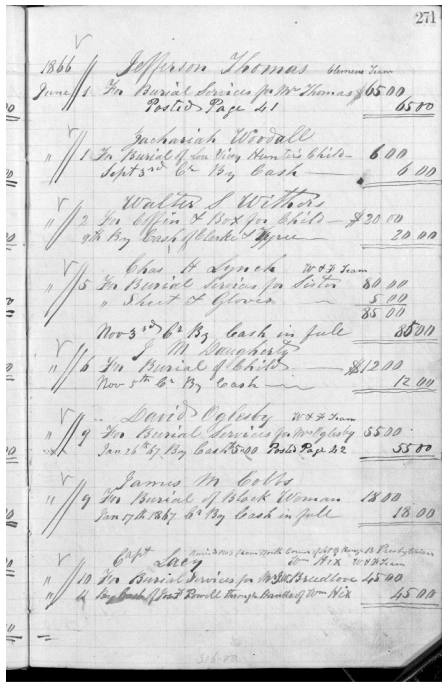 271
1866 Jefferson Thomas Clemens Team
June 1 For Burial Services for Mrs Thomas $65 00
Posted Page 41 65 00
Zachariah Woodall
" 1 For Burial of Child 6 00
Sept 3rd Cr By Cash 6 00
Walter S Withers
" 2 For Coffin & Box for Child $20 00
9th By Cash of Clarke & 20 00
Chas H Lynch W & F Team
" 5 For Burial Services for Sister 80 00
" Sheet & Gloves 5 00
85 00
Nov 3rd Cr By Cash in full 85 00
J M Daugherty
" 6 For Burial of Child $12 00
Nov 5th Cr By Cash 12 00
David Oglesby W & F Team
" 9 For Burial Services for Mrs Oglesby 55 00
Jan 26th 67 By Cash Posted Page 42 55 00
James M Cobbs
" 9 For Burial of Black Woman 18 00
Jan 17th 1867 Cr By Cash in full 18 00
Capt Lacy Wm Hix W & F Team
" 10 For Burial Services for Breedlove 45 00
" By of Powell through Hands of Wm Hix 45 00